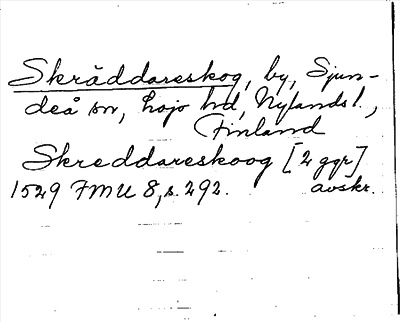 Skräddareskog, by, Sjun-
deå sn, Lojo hd, Nylands l.,
Finland
Skreddareskoog [2 ggr]
1529 FMU 8, s. 292. avskr.